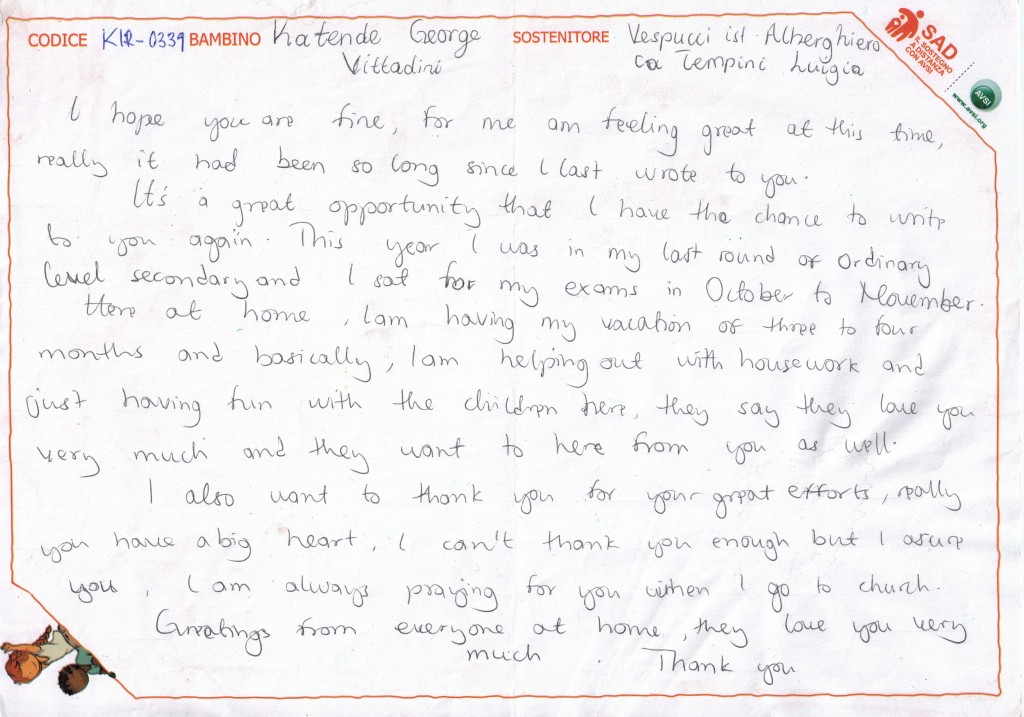 CODICE KIR-0339 BAMBINO Katende George SOSTENITORE Vespucci ist. Alberghiero
Vittadini ca Tempini Luigia
SAD
IL SOSTEGNO
A DISTANZA
CON AVSI
AVSI
www.avsi.org
I hope you are fine, for me am feeling great at this time,
really it had been so long since I last wrote to you.
It's a great opportunity that I have the chance to write
to you again. This year I was in my last round of ordinary
level secondary and I sat for my exams in October to November.
Here at home, I am having my vacation of three to four
months and basically, I am helping out with housework and
just having fun with the children here, they say they love you
very much and they want to here from you as well.
I also want to thank you for your great efforts, really
you have a big heart, I can't thank you enough but I asure
you, I am always praying for you when I go to church.
Greatings from everyone at home, they love you very
much. Thank you